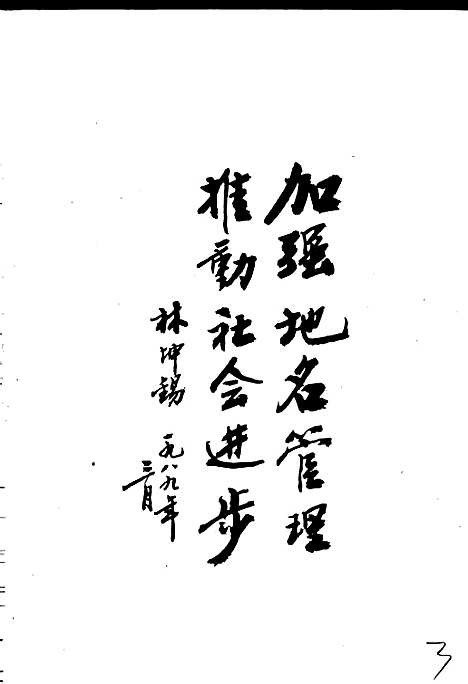 加强地名管理
推動社会进步
林坤锡
一九八九年
三月
3